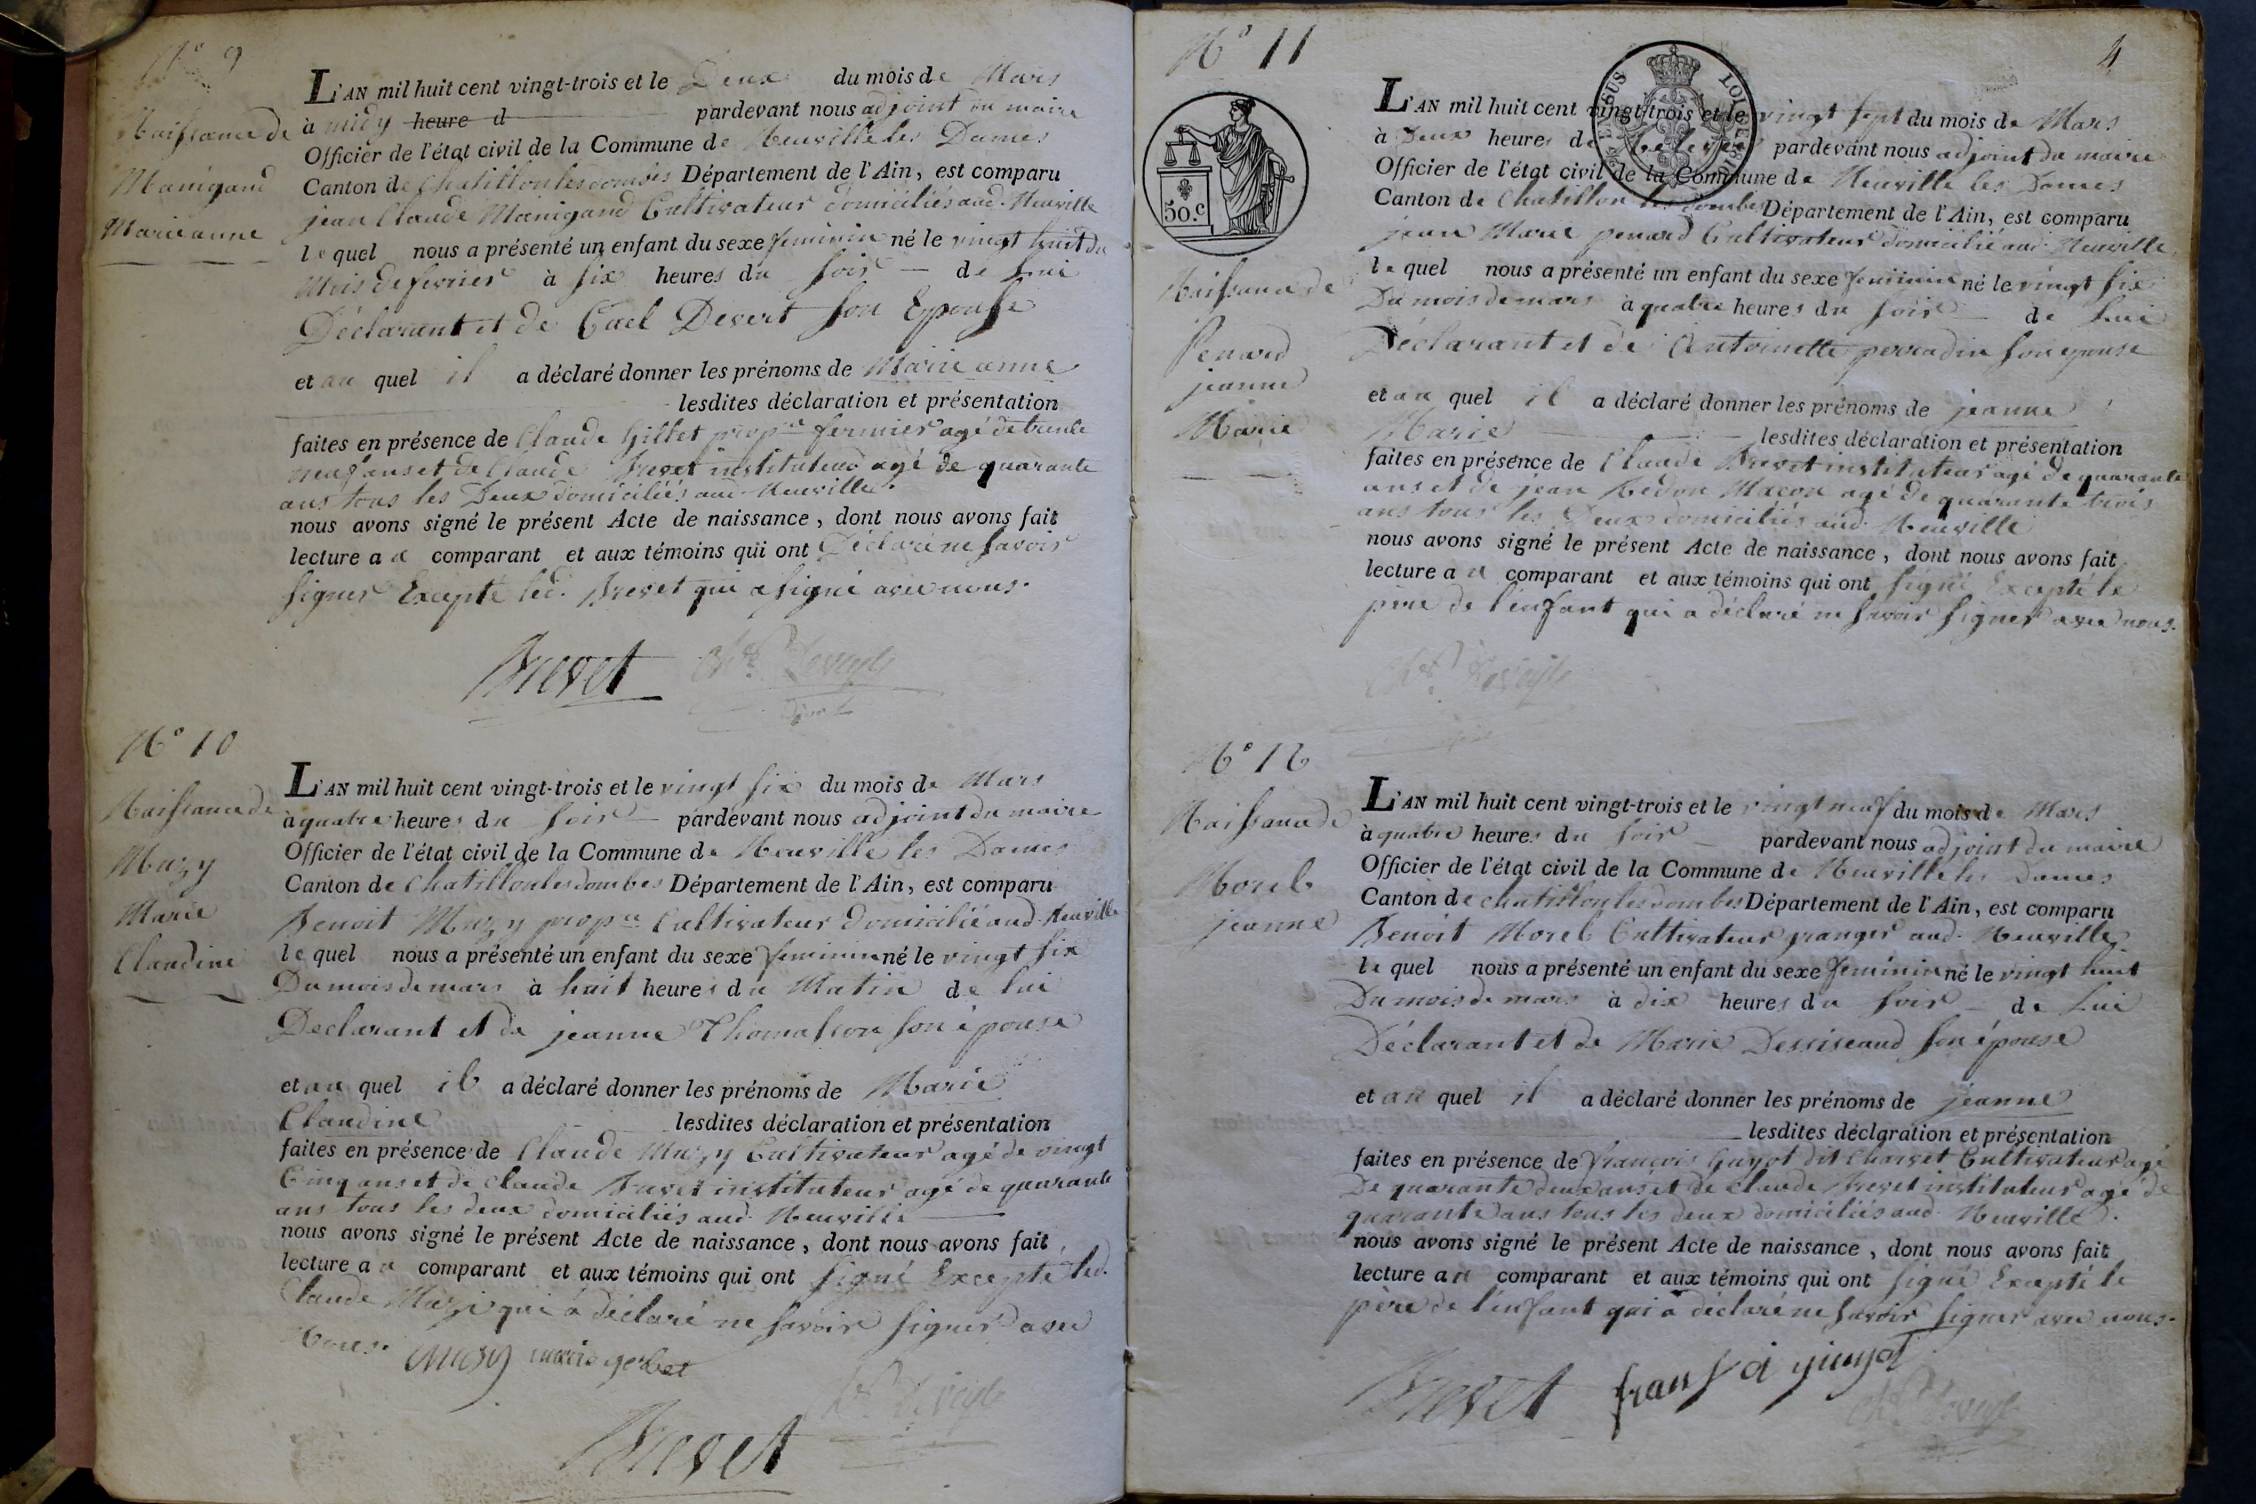 N° 9
Naissance de
Manigand
Marie anne
L'AN mil huit cent vingt-trois et le Deux du mois de Mars
à midy heure d pardevant nous adjoint du maire
Officier de l'état civil de la Commune de Neuville les Dames
Canton de Chatillon les dombes Département de l'Ain, est comparu
jean Claude Manigand Cultivateur domiciliés aud. Neuville
le quel nous a présenté un enfant du sexe feminin né le vingt huit du
Mois de fevrier à six heures du soir de Lui
Déclarant et de Cael Devert son Epouse
et au quel il a déclaré donner les prénoms de Marie anne
lesdites déclaration et présentation
faites en présence de Claude Gillet propre fermier agé de trente
neuf ans et de Claude Brevet instituteur agé de quarante
ans tous les Deux domiciliés aud. Neuville.
nous avons signé le présent Acte de naissance, dont nous avons fait
lecture au comparant et aux témoins qui ont Déclaré ne savoir
signer Excepté led. Brevet qui a signé avec nous.
Brevet
N° 10
Naissance de
Muzy
Marie
Claudine
L'AN mil huit cent vingt-trois et le vingt six du mois de Mars
à quatre heures du soir pardevant nous adjoint du maire
Officier de l'état civil de la Commune de Neuville les Dames
Canton de Chatillon les dombes Département de l'Ain, est comparu
Benoit Muzy propre Cultivateur domicilié aud. Neuville
le quel nous a présenté un enfant du sexe feminin né le vingt six
Du mois de mars à huit heures du Matin de lui
Declarant et de jeanne Thomasson son épouse
et au quel il a déclaré donner les prénoms de Marie
Claudine lesdites déclaration et présentation
faites en présence de Claude Muzy Cultivateur agé de vingt
Cinq ans et de Claude Brevet instituteur agé de quarante
ans tous les deux domiciliés aud. Neuville
nous avons signé le présent Acte de naissance, dont nous avons fait
lecture au comparant et aux témoins qui ont signé Excepté led.
Claude Muzi qui a déclaré ne savoir signer avec
Nous.
muzy
Brevet
4
N° 11
50.c
Naissance de
Penard
jeanne
Marie
L'AN mil huit cent vingt-trois et le vingt sept du mois de Mars
à Deux heures de pardevant nous adjoint du maire
Officier de l'état civil de la Commune de Neuville les Dames
Canton de Chatillon les dombes Département de l'Ain, est comparu
jean Marie penard Cultivateur domicilié aud. Neuville
le quel nous a présenté un enfant du sexe feminin né le vingt six
Du mois de mars à quatre heures du soir de Lui
Déclarant et de Antoinette perradin son epouse
et au quel il a déclaré donner les prénoms de jeanne
Marie lesdites déclaration et présentation
faites en présence de Claude Brevet instituteur agé de quarante
ans et de jean Redon Macon agé de quarante trois
ans tous les Deux domiciliés aud. Neuville
nous avons signé le présent Acte de naissance, dont nous avons fait
lecture au comparant et aux témoins qui ont signé Excepté le
pere de l'enfant qui a déclaré ne savoir signer avec nous.
N° 12
Naissance de
Morel
jeanne
L'AN mil huit cent vingt-trois et le vingt neuf du mois de Mars
à quatre heures du soir pardevant nous adjoint du maire
Officier de l'état civil de la Commune de Neuville les Dames
Canton de Chatillon les dombes Département de l'Ain, est comparu
Benoit Morel Cultivateur granger aud. Neuville
le quel nous a présenté un enfant du sexe feminin né le vingt huit
Du mois de mars à dix heures du soir de Lui
Déclarant et de Marie Desriseaud son épouse
et au quel il a déclaré donner les prénoms de jeanne
lesdites déclaration et présentation
faites en présence de françois Guyot dit Charvet Cultivateur agé
De quarante deux ans et de Claude Brevet instituteur agé de
quarante ans tous les deux domiciliés aud. Neuville.
nous avons signé le présent Acte de naissance, dont nous avons fait
lecture au comparant et aux témoins qui ont signé Excepté le
père de l'enfant qui a déclaré ne savoir signer avec nous.
Brevet